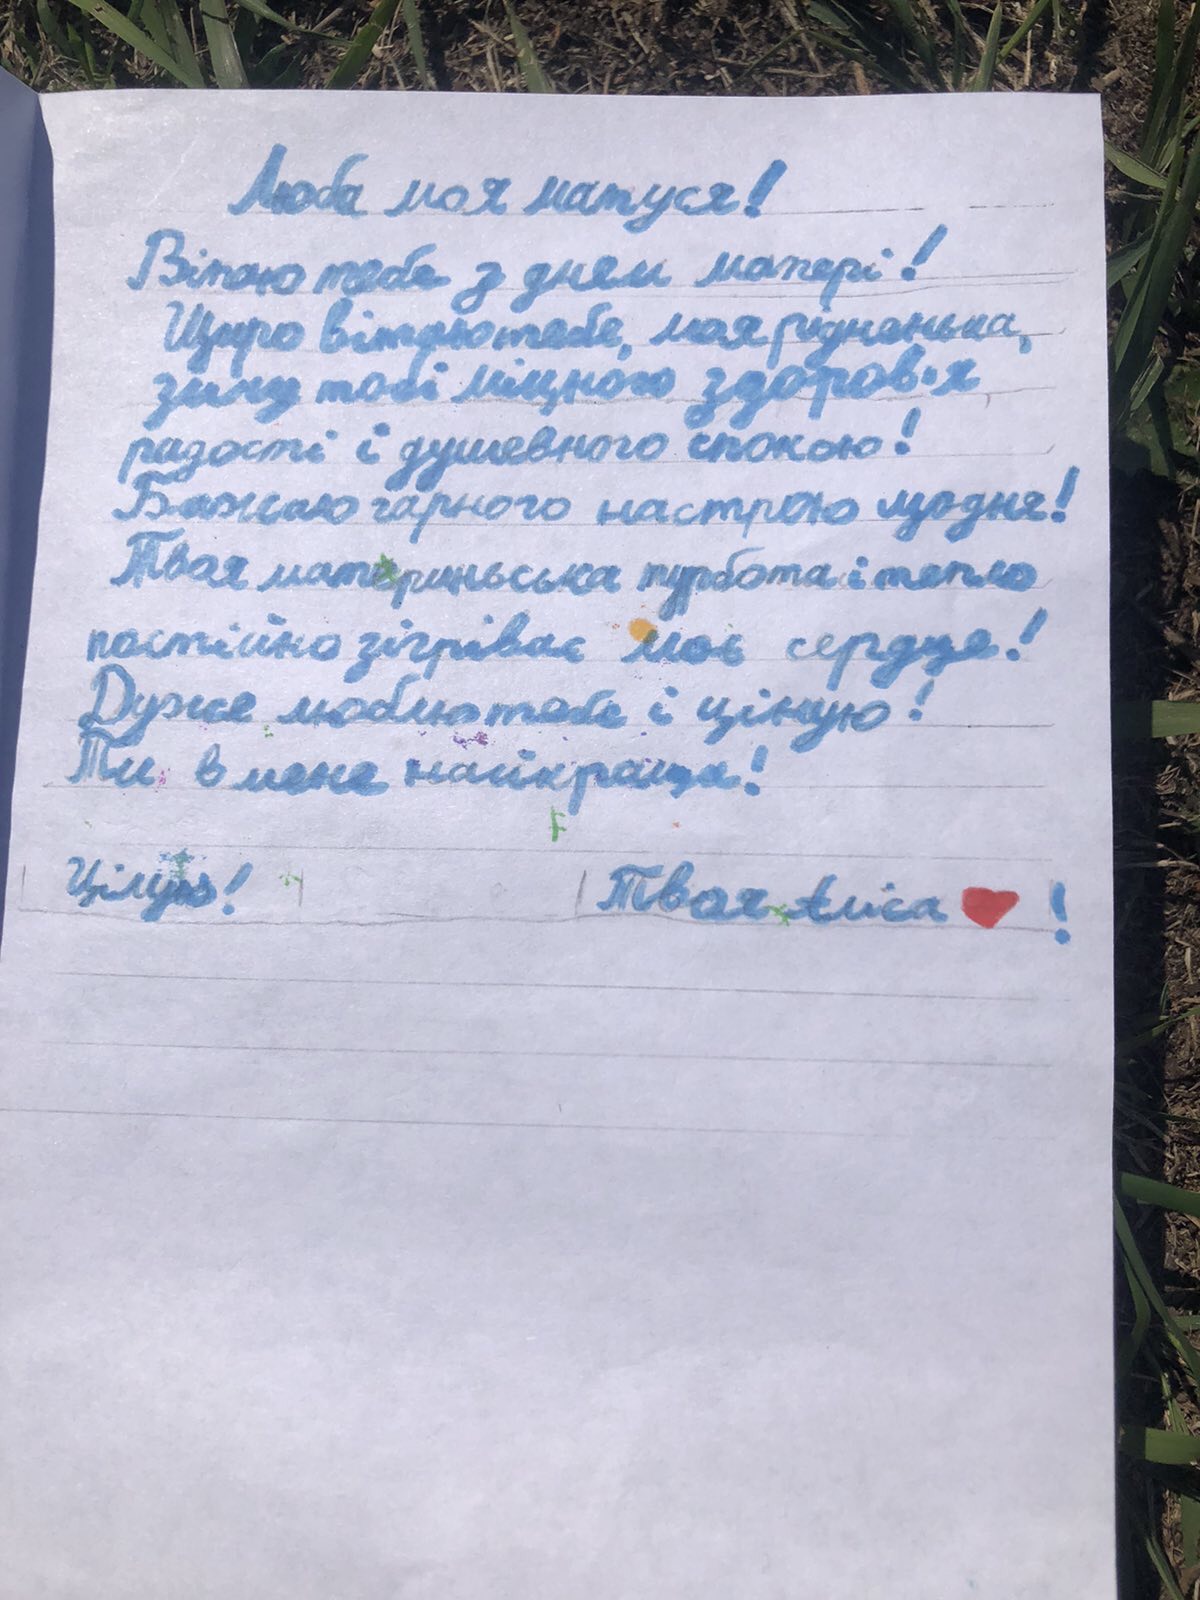 Люба моя матуся!
Вітаю тебе з днем матері!
Щиро вітаю тебе, моя рідненька,
зичу тобі міцного здоров'я
радості і душевного спокою!
Бажаю гарного настрою щодня!
Твоя материнська турбота і тепло
постійно зігріває моє серце!
Дуже люблю тебе і ціную!
Ти в мене найкраща!
Цілую! Твоя Аліса ❤ !